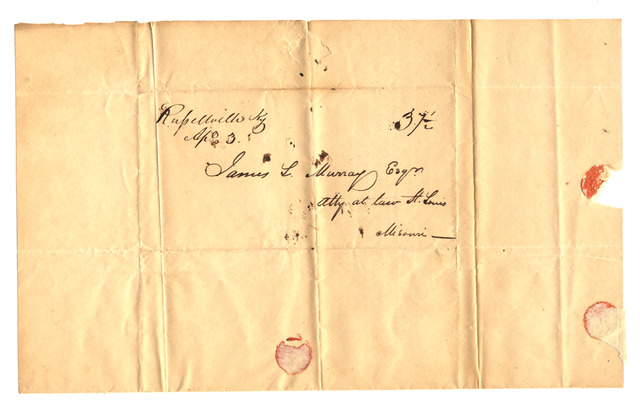 Russellville Ky
Apl 3.
37½
James L. Murray Esqr
atty at law St. Louis
Misouri